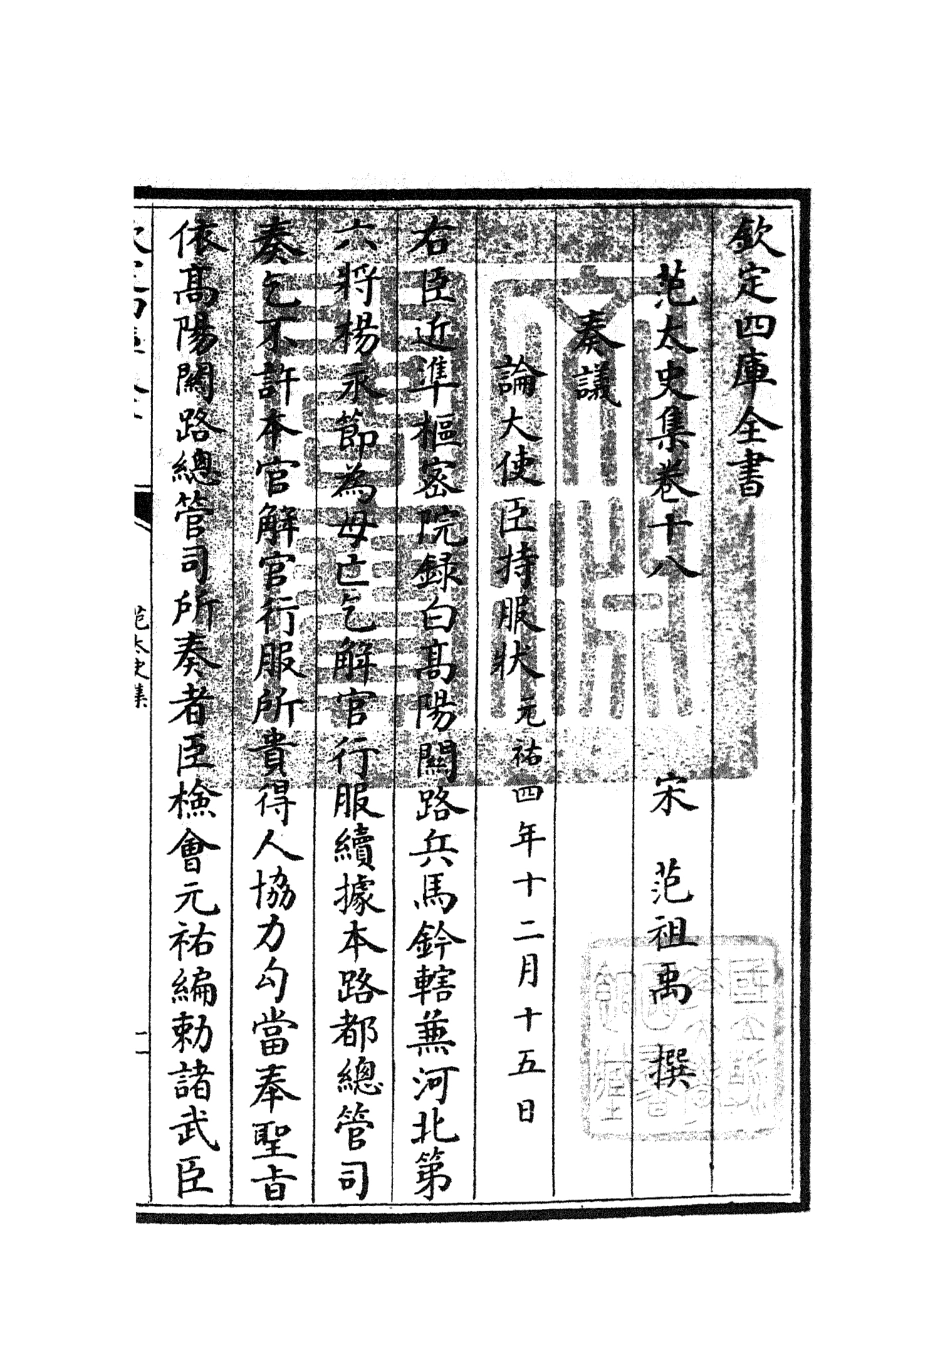 欽定四庫全書
范太史集卷十八
宋 范祖禹 撰
奏議
論大使臣持服狀元祐四年十二月十五日
右臣近準樞密院録白髙陽闗路兵馬鈐轄兼河北第
六將楊永節為母亡乞解官行服續據本路都總管司
奏乞不許本官解官行服所貴得人協力勾當奉聖㫖
依髙陽闗路總管司所奏者臣檢會元祐編勅諸武臣
范太史集